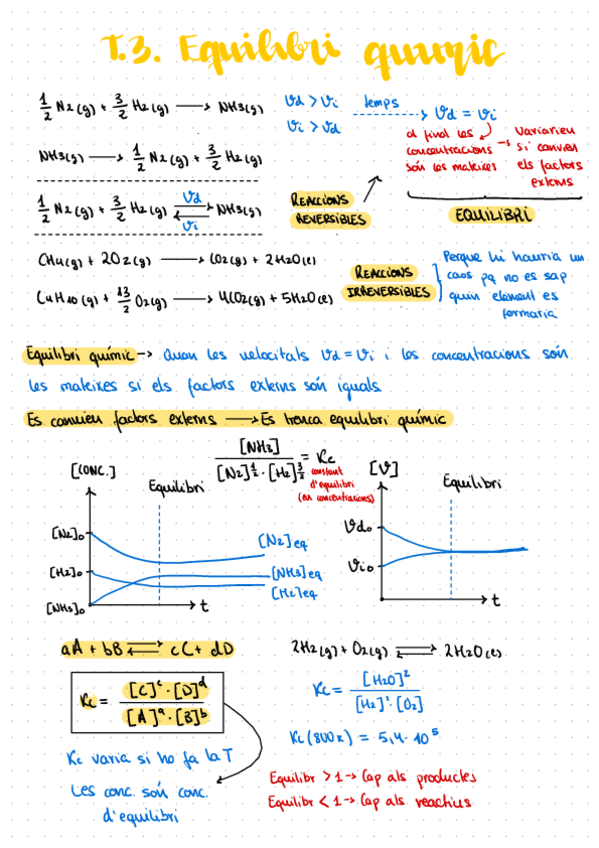 T.3. Equilibri químic
1/2 N2(g) + 3/2 H2(g) → NH3(g)   Vd > Vi   temps → Vd = Vi
Vi > Vd
al final les concentracions són les mateixes → Variarien si canvien els factors externs
NH3(g) → 1/2 N2(g) + 3/2 H2(g)
1/2 N2(g) + 3/2 H2(g) ⇄ NH3(g)   Vd   Vi
REACCIONS REVERSIBLES
EQUILIBRI
CH4(g) + 2O2(g) → CO2(g) + 2H2O(l)
C4H10(g) + 13/2 O2(g) → 4CO2(g) + 5H2O(l)
REACCIONS IRREVERSIBLES
Perque hi hauria un
caos pq no es sap
quin element es
formaria
Equilibri químic → Quan les velocitats Vd = Vi i les concentracions són
les mateixes si els factors externs són iguals
Es canvien factors externs → Es trenca equilibri químic
[NH3] / [N2]^1/2 · [H2]^3/2 = Kc
constant
d'equilibri
(en concentracions)
[CONC.]
Equilibri
[N2]0
[H2]0
[NH3]0
[N2]eq
[NH3]eq
[H2]eq
t
[V]
Equilibri
Vd0
Vi0
t
aA + bB ⇄ cC + dD
Kc = [C]^c · [D]^d / [A]^a · [B]^b
Kc varia si ho fa la T
Les conc. són conc.
d'equilibri
2H2(g) + O2(g) ⇄ 2H2O(l)
Kc = [H2O]^2 / [H2]^2 · [O2]
Kc (800K) = 5,4 · 10^5
Equilibr > 1 → Cap als productes
Equilibr < 1 → Cap als reactius